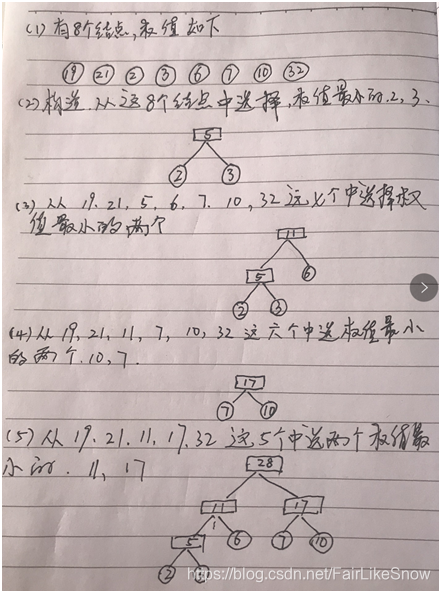 (1) 有8个结点,权值如下
19 21 2 3 6 7 10 32
(2) 构造.从这8个结点中选择,权值最小的.2,3.
5
2 3
(3) 从 19.21,5,6,7.10,32这七个中选择权
值最小的两个
11
5 6
2 3
(4) 从19,21,11,7,10,32这六个中选权值最小
的两个.10,7.
17
7 10
(5) 从19.21.11,17.32 这5个中选两个权值最
小的.11,17
28
11 17
5 6 7 10
2 3
https://blog.csdn.net/FairLikeSnow